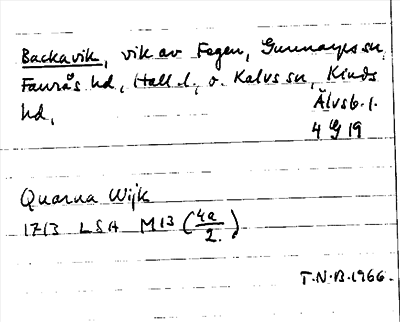 Backavik, vik av Fegen, Gunnarps sn,
Faurås hd, Hall. l., o. Kalvs sn, Kinds
hd, Älvsb. l.
4 G 19
Quarna Wijk
1713 LSA M13 (4a/2.)
T.N.B. 1966.